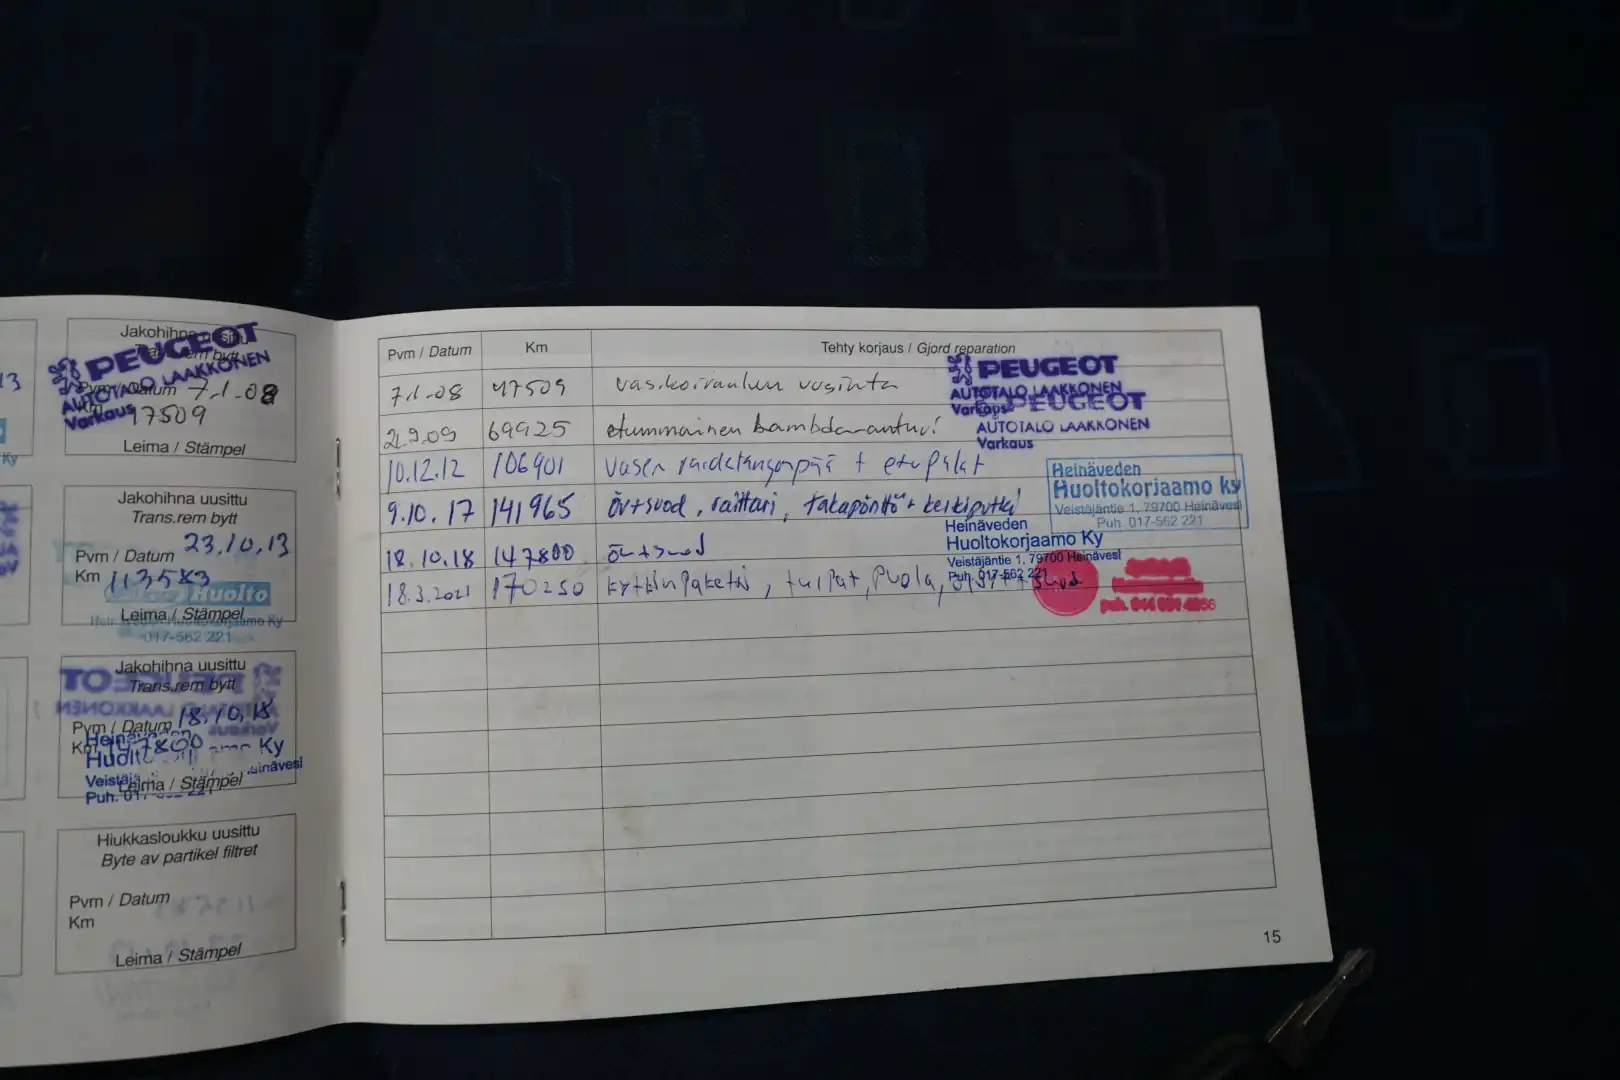 13
Ky
Jakohihna
Trans.rem bytt
PEUGEOT
AUTOTALO LAAKKONEN
Varkaus
Pvm / Datum 7.1.08
Km 47509
Leima / Stämpel
Jakohihna uusittu
Trans.rem bytt
Pvm / Datum 23.10.13
Km 113583
Huolto
Leima / Stämpel
017-562 221
Jakohihna uusittu
Trans.rem bytt
Pvm / Datum 18.10.18
Km 147800
Ky
Leima / Stämpel
Puh.
Hiukkasloukku uusittu
Byte av partikel filtret
Pvm / Datum
Km
Leima / Stämpel
Pvm / Datum Km Tehty korjaus / Gjord reparation
7.1.08 47509 vas.koiranluun vusinta
PEUGEOT
AUTOTALO LAAKKONEN
Varkaus
21.9.09 69925 etummainen lambda-anturi
PEUGEOT
AUTOTALO LAAKKONEN
Varkaus
10.12.12 106901 vasen raidetangonpää + etupalat
Heinäveden
Huoltokorjaamo ky
Veistäjäntie 1, 79700 Heinävesi
Puh. 017-562 221
9.10.17 141965 öv+suod, raittari, takapönttö + keskiputki
Heinäveden
Huoltokorjaamo Ky
Veistäjäntie 1, 79700 Heinävesi
Puh. 017-562 221
18.10.18 147800 öv+suod
18.3.2021 170250 kytkinpaketti, tulpat, puola,
puh. 044
15